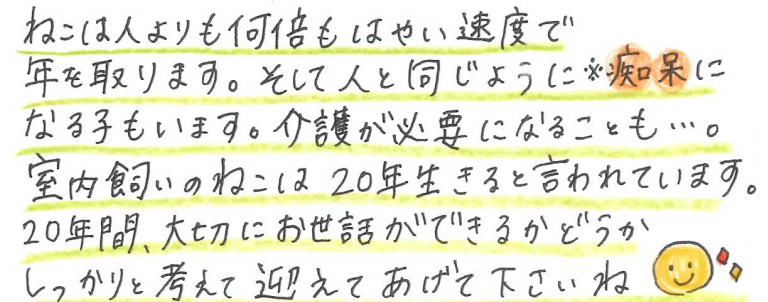 ねこは人よりも何倍もはやい速度で
年を取ります。そして人と同じように※痴呆に
なる子もいます。介護が必要になることも…。
室内飼いのねこは20年生きると言われています。
20年間、大切にお世話ができるかどうか
しっかりと考えて迎えてあげて下さいね